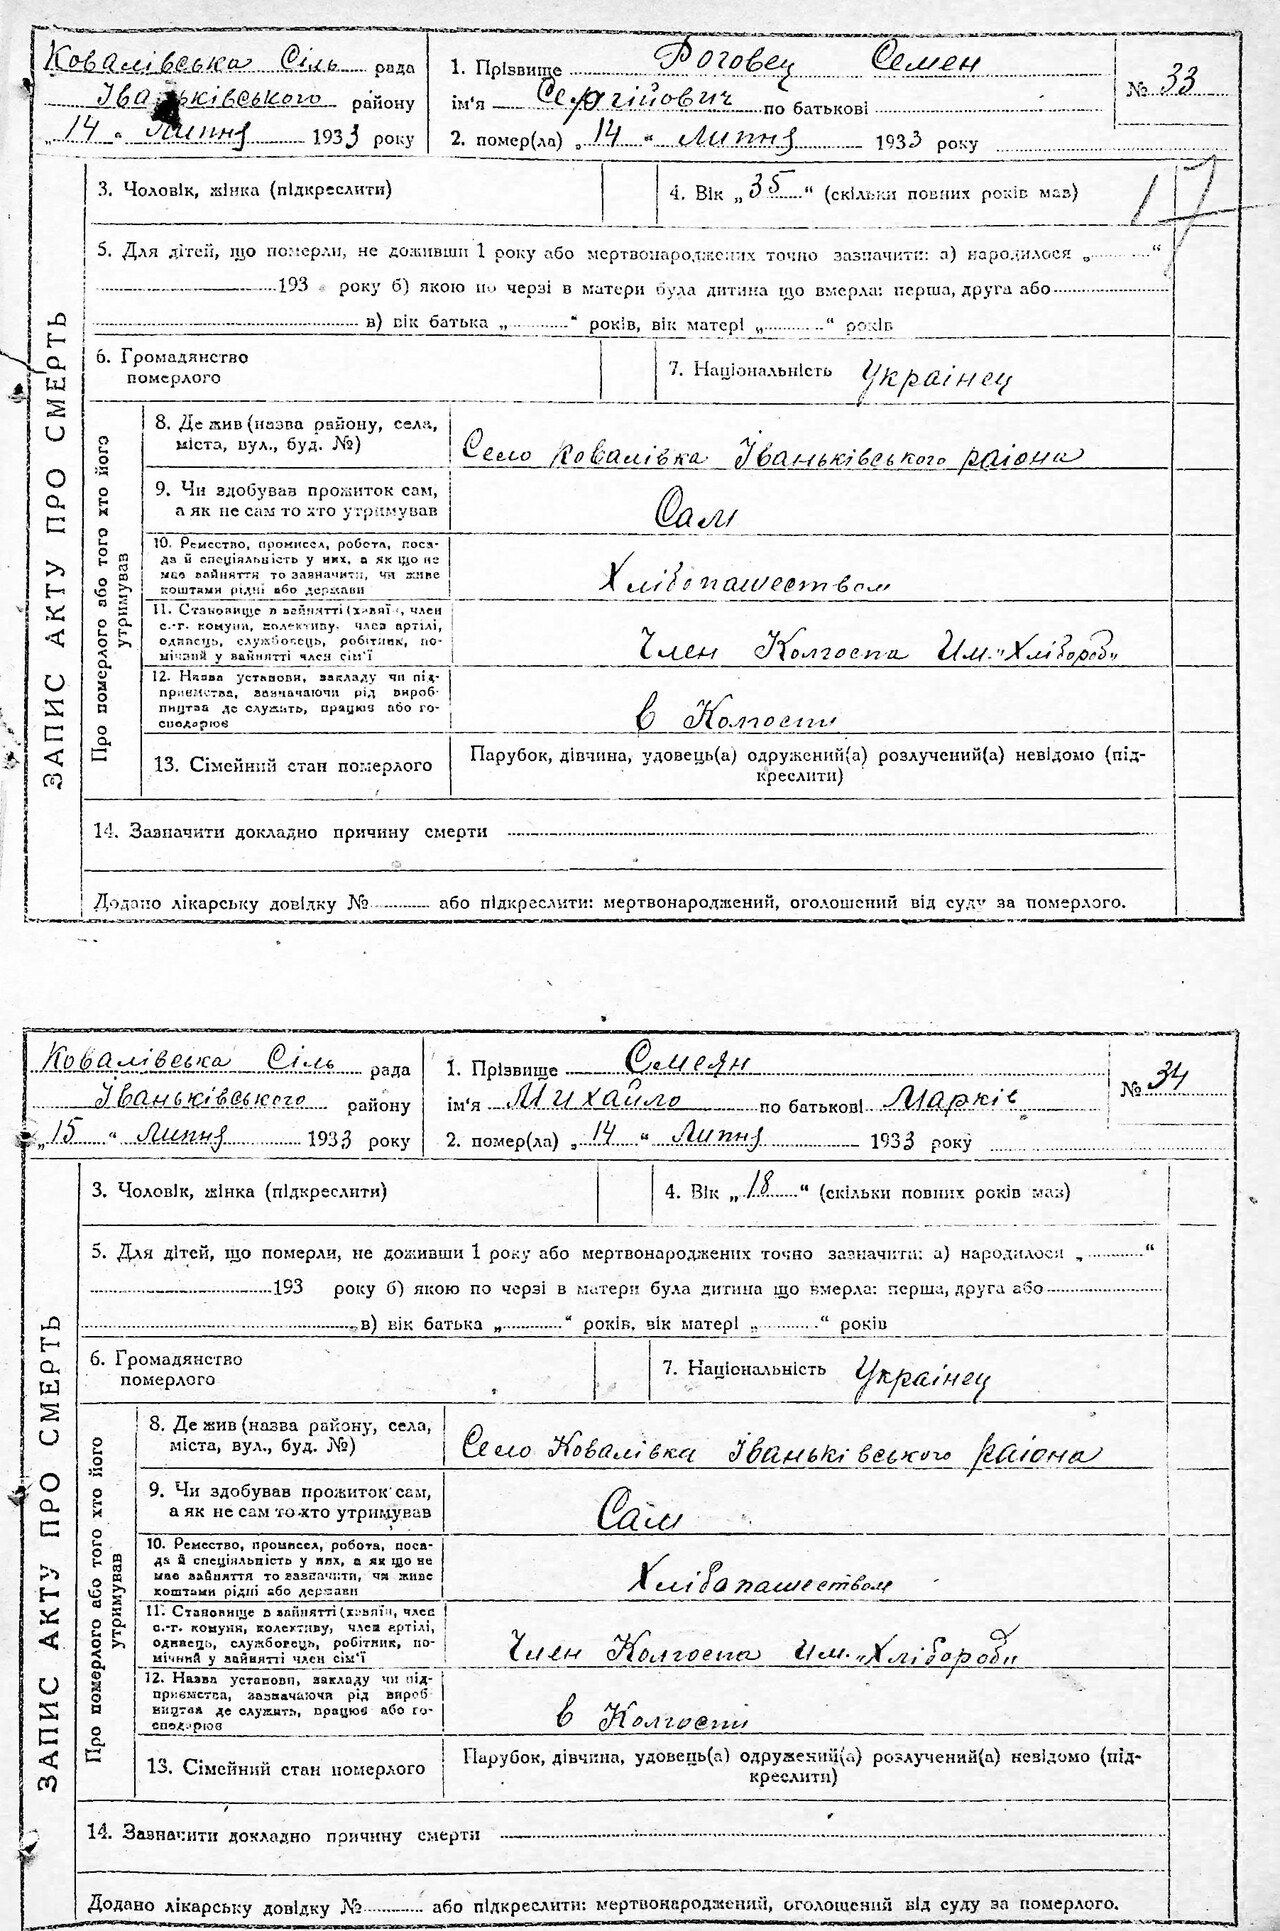 Ковалівська Сіль рада
Іваньківського району
„14 “ Липня 1933 року
1. Прізвище Роговец Семен
ім'я Сергійович по батькові
2. помер(ла) „14 “ Липня 1933 року
№ 33
17
3. Чоловік, жінка (підкреслити)
4. Вік „35“ (скільки повних років мав)
5. Для дітей, що померли, не доживши 1 року або мертвонароджених точно зазначити: а) народилося „ “
193 року б) якою по черзі в матери була дитина що вмерла: перша, друга або
в) вік батька „ “ років, вік матері „ “ років
6. Громадянство
померлого
7. Національність Украінец
ЗАПИС АКТУ ПРО СМЕРТЬ
Про померлого або того хто його
утримував
8. Де жив (назва району, села,
міста, вул., буд. №)
Село Ковалівка Іваньківського раіона
9. Чи здобував прожиток сам,
а як не сам то хто утримував
Сам
10. Ремество, промисел, робота, поса-
да й спеціяльність у них, а як що не
має зайняття то зазначити, чи живе
коштами рідні або держави
Хлібопашеством
11. Становище в зайнятті (хазяїн, член
с.-г. комуни, колективу, член артілі,
одинець, службовець, робітник, по-
мічний у зайнятті член сім'ї
Член Колгоспа Им. „Хлібороб“
12. Назва установи, закладу чи під-
приємства, зазначаючи рід вироб-
ництва де служить, працює або го-
сподарює
в Колгоспи
13. Сімейний стан померлого
Парубок, дівчина, удовець(а) одружений(а) розлучений(а) невідомо (під-
креслити)
14. Зазначити докладно причину смерти
Додано лікарську довідку № або підкреслити: мертвонароджений, оголошений від суду за померлого.
Ковалівська Сіль рада
Іваньківського району
„15 “ Липня 1933 року
1. Прізвище Смеян
ім'я Михайло по батькові Марків
2. помер(ла) „14 “ Липня 1933 року
№ 34
3. Чоловік, жінка (підкреслити)
4. Вік „18“ (скільки повних років мав)
5. Для дітей, що померли, не доживши 1 року або мертвонароджених точно зазначити: а) народилося „ “
193 року б) якою по черзі в матери була дитина що вмерла: перша, друга або
в) вік батька „ “ років, вік матері „ “ років
6. Громадянство
померлого
7. Національність Украінец
ЗАПИС АКТУ ПРО СМЕРТЬ
Про померлого або того хто його
утримував
8. Де жив (назва району, села,
міста, вул., буд. №)
Село Ковалівка Іваньківського раіона
9. Чи здобував прожиток сам,
а як не сам то хто утримував
Сам
10. Ремество, промисел, робота, поса-
да й спеціяльність у них, а як що не
має зайняття то зазначити, чи живе
коштами рідні або держави
Хлібапашеством
11. Становище в зайнятті (хазяїн, член
с.-г. комуни, колективу, член артілі,
одинець, службовець, робітник, по-
мічний у зайнятті член сім'ї
Член Колгоспа Им. „Хлібороб“
12. Назва установи, закладу чи під-
приємства, зазначаючи рід вироб-
ництва де служить, працює або го-
сподарює
в Колгоспі
13. Сімейний стан померлого
Парубок, дівчина, удовець(а) одружений(а) розлучений(а) невідомо (під-
креслити)
14. Зазначити докладно причину смерти
Додано лікарську довідку № або підкреслити: мертвонароджений, оголошений від суду за померлого.